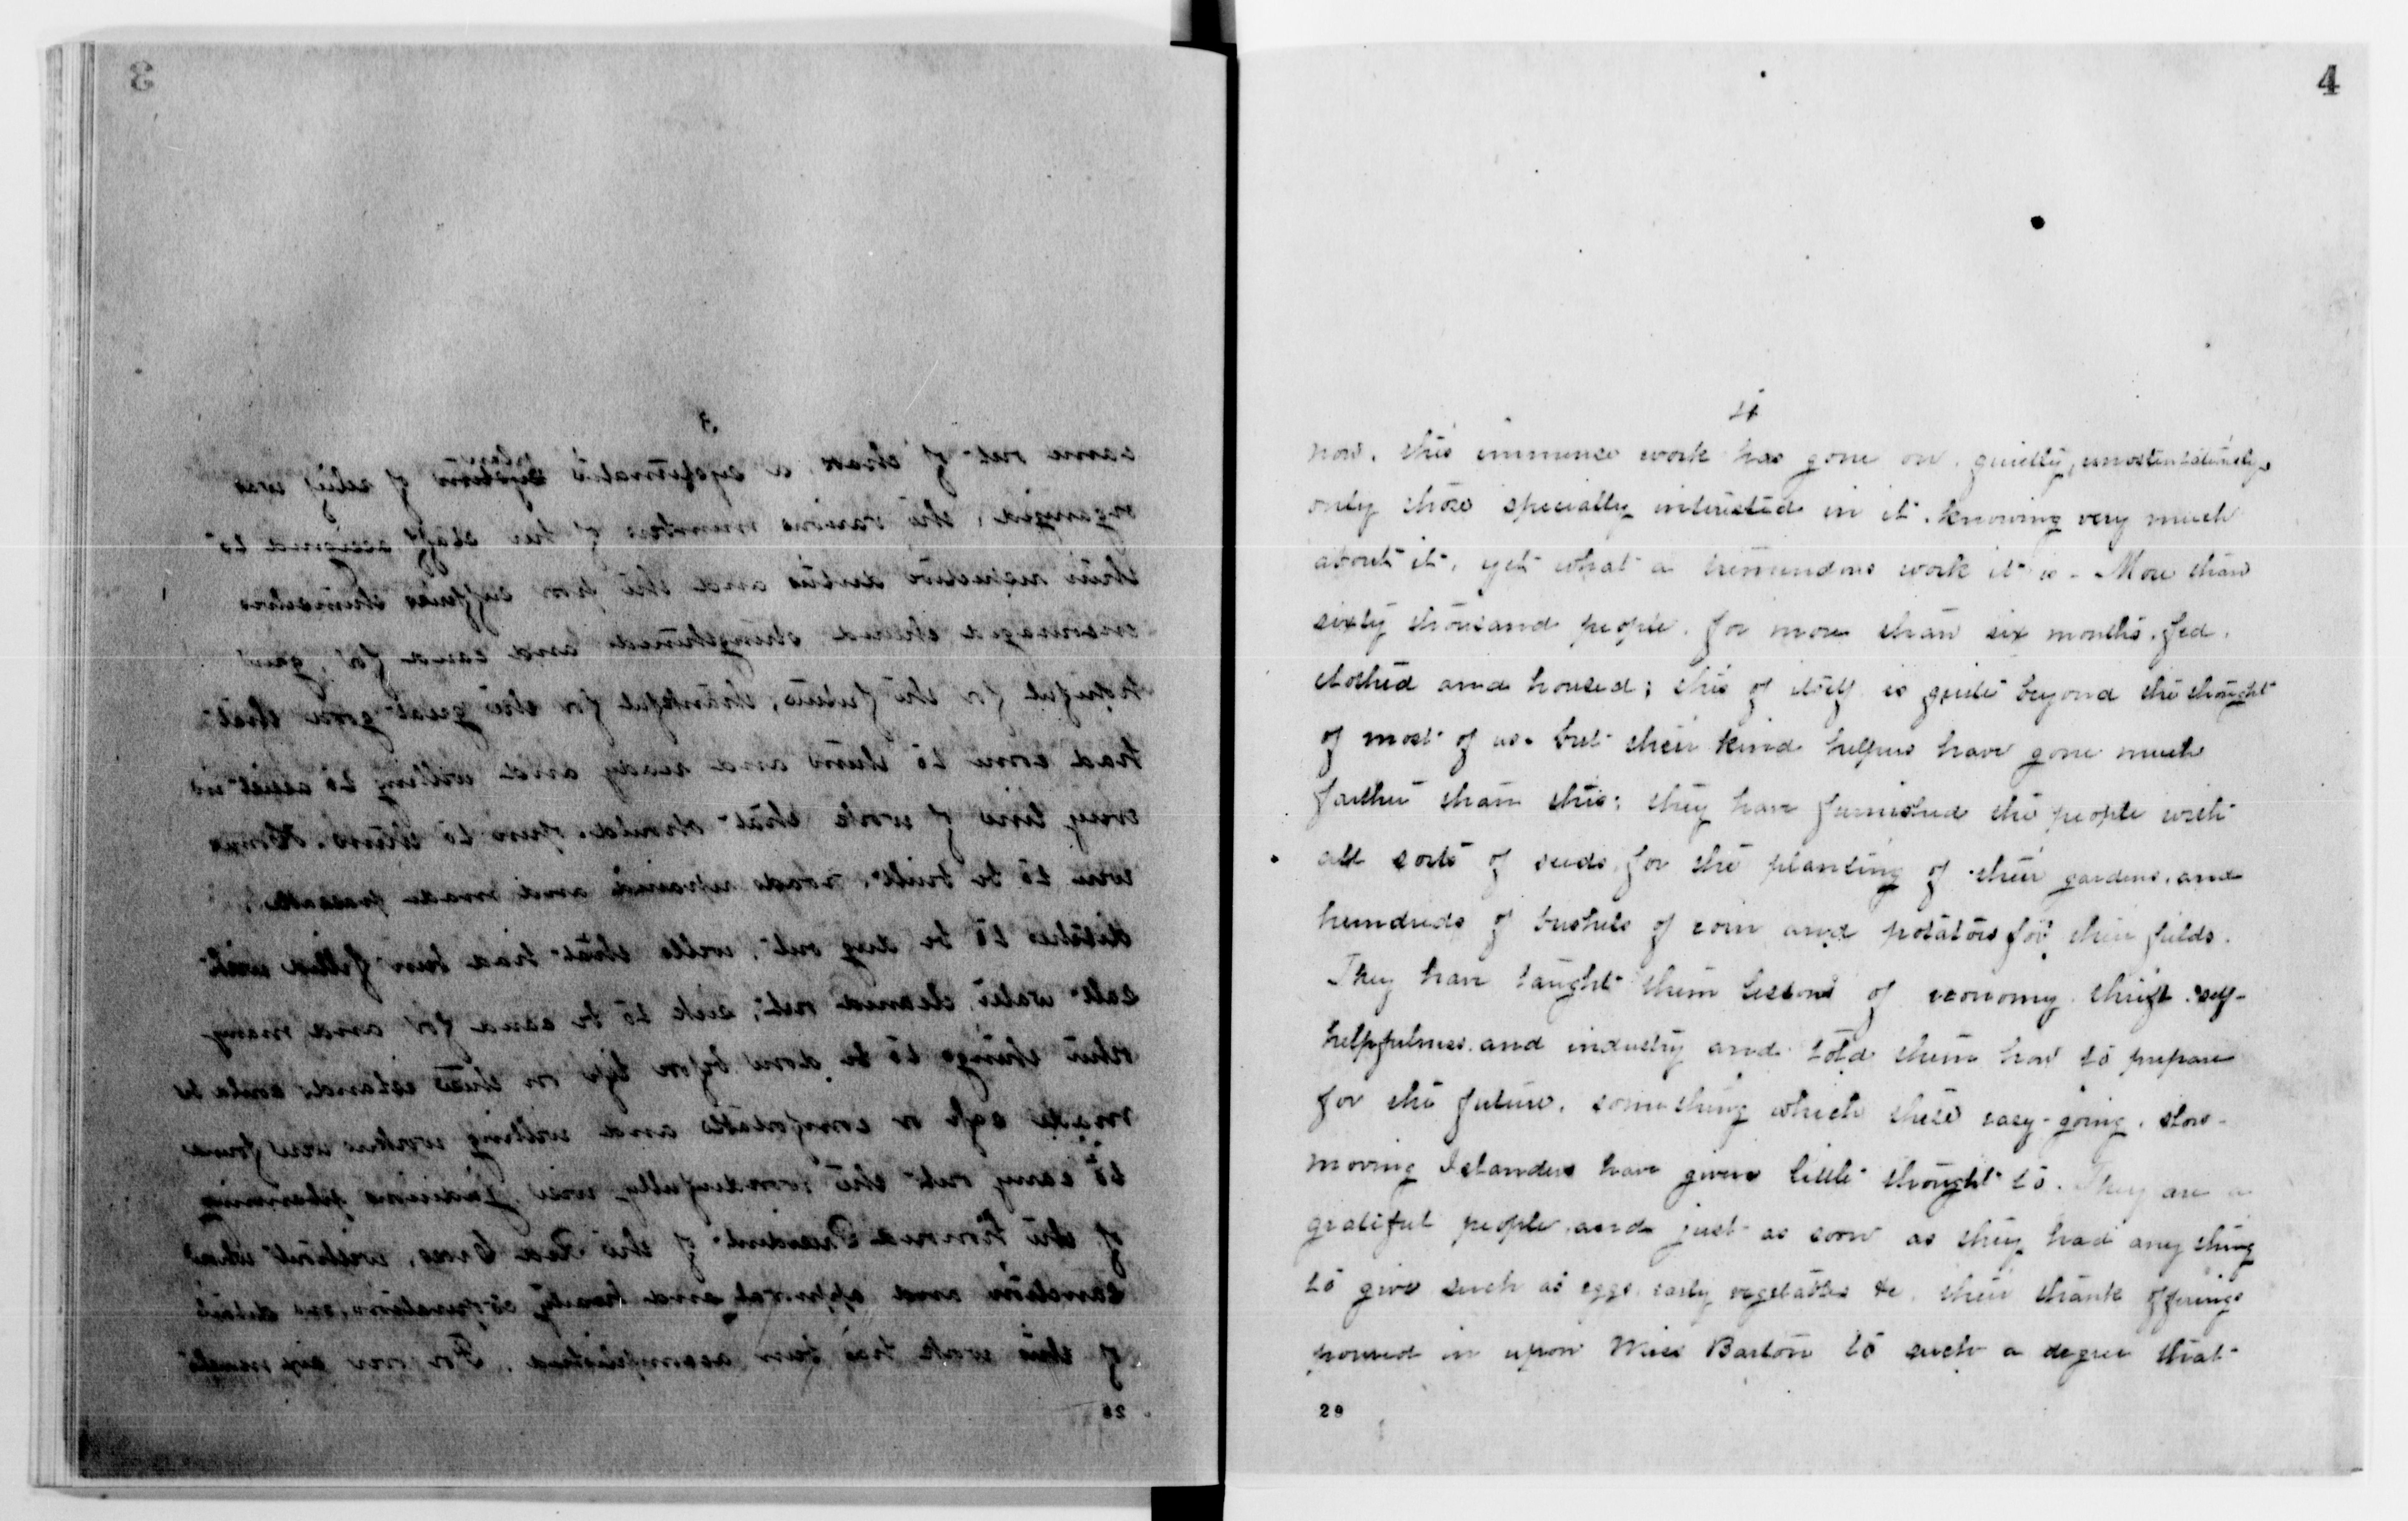 3
3
came out of chaos, a systematic system plan of relief was
organized, the various members of her staff assigned to
their respective duties and the poor sufferers themselves
encouraged cheered strengthened and cared for, grew
hopeful for the future, thankful for the great good that
had come to them and ready and willing to assist in
every line of work that should open to them. Homes
were to be built, roads repaired and made passable,
ditches to be dug out, wells that had been filled with
salt water, cleaned out; sick to be cared for and many
other things to be done before life on these islands could be
made safe or comfortable and willing workers were found
to carry out the wonderfully wise, judicious planning
of the honored President of the Red Cross, without whose
sanction and approval and hearty cooperation, no detail
of this work has been accomplished. For over six months
28
4
4
now, this immense work has gone on, quietly, unostentatiously,
only those specially interested in it, knowing very much
about it, yet what a tremendous work it is - More than
sixty thousand people, for more than six months, fed,
clothed and housed; this of itself is quite beyond the thought
of most of us. but their kind helpers have gone much
farther than this; they have furnished the people with
all sorts of seeds, for the planting of their gardens, and
hundreds of bushels of corn and potatoes for their fields.
They have taught them lessons of economy, thrift, self-
helpfulness, and industry and told them how to prepare
for the future, something which these easy-going, slow-
moving Islanders have given little thought to. They are a
grateful people, and just as soon as they had any thing
to give such as eggs, early vegetables &c, their thank offerings
poured in upon Miss Barton to such a degree that
29